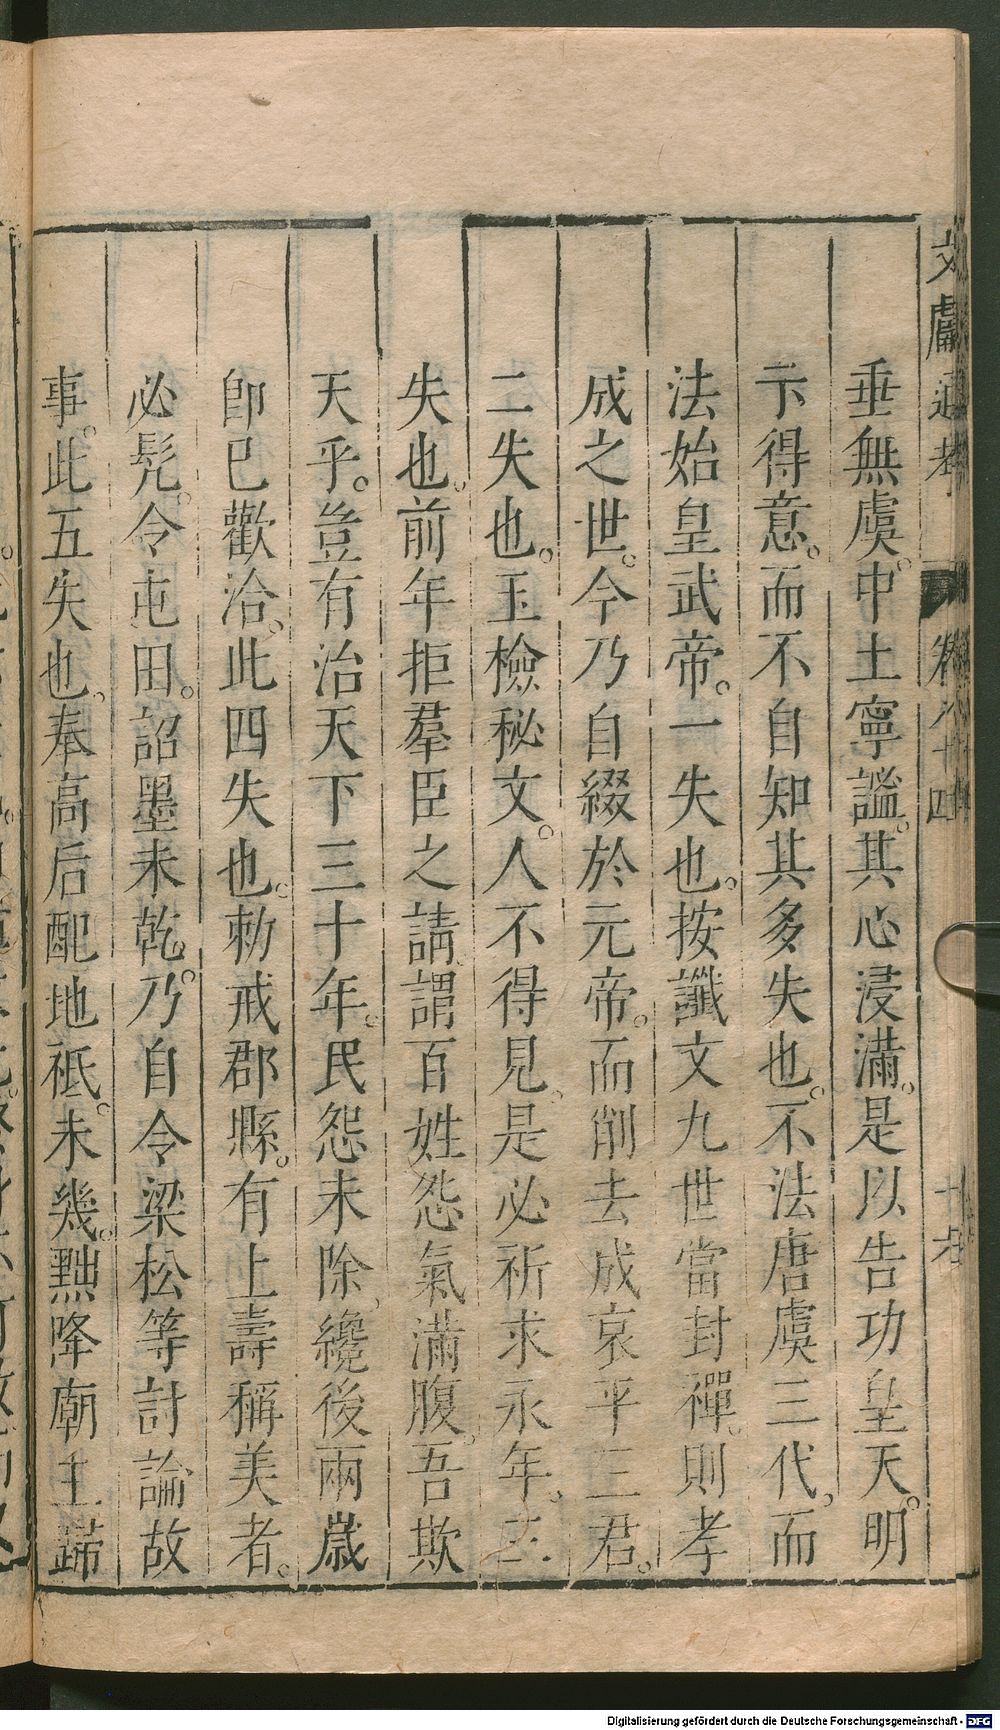 文獻通考 卷八十四 十七
垂無虞。中土寧謐。其心浸滿。是以告功皇天。明
示得意。而不自知其多失也。不法唐虞三代，而
法始皇武帝。一失也。按讖文九世當封禪。則孝
成之世。今乃自綴於元帝。而削去成哀平三君。
二失也。玉檢秘文。人不得見。是必祈求永年。三
失也。前年拒羣臣之請。謂百姓怨氣滿腹。吾欺
天乎。豈有治天下三十年。民怨未除，纔後兩歲
卽已歡洽。此四失也。勑戒郡縣。有上壽稱美者。
必髠。令屯田。詔墨未乾。乃自令梁松等討論故
事。此五失也。奉高后配地祗。未幾。黜降廟主歸
Digitalisierung gefördert durch die Deutsche Forschungsgemeinschaft - DFG